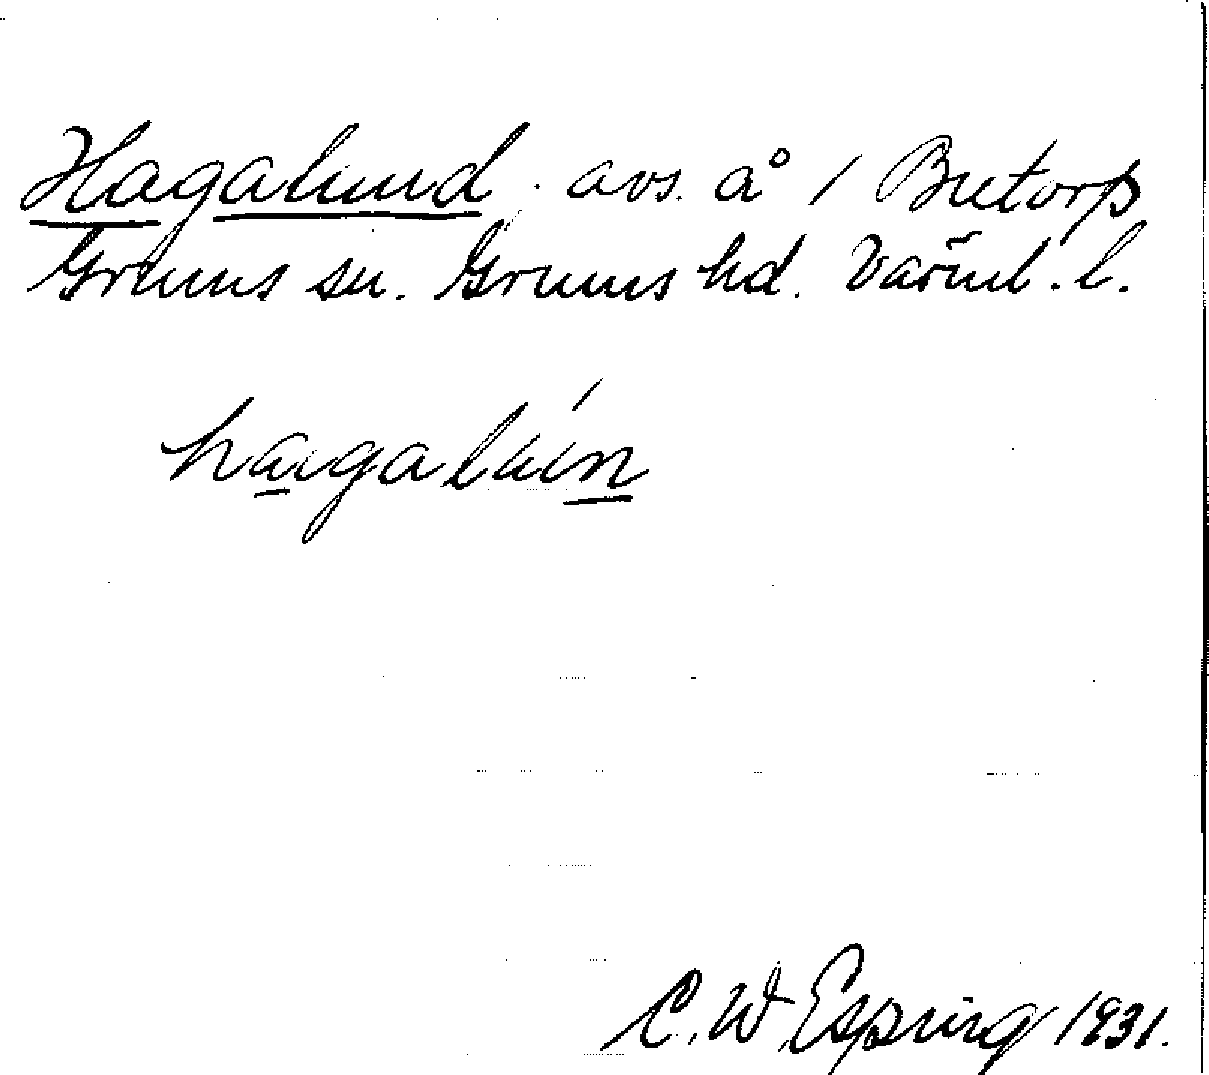 Hagalund. avs. å 1 Butorp
Grums sn. Grums hd. Värml. l.
hagalún
C. W. Espring 1931.